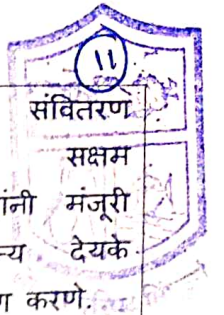 ११
संवितरण
सक्षम
मंजूरी
देयके
करणे.